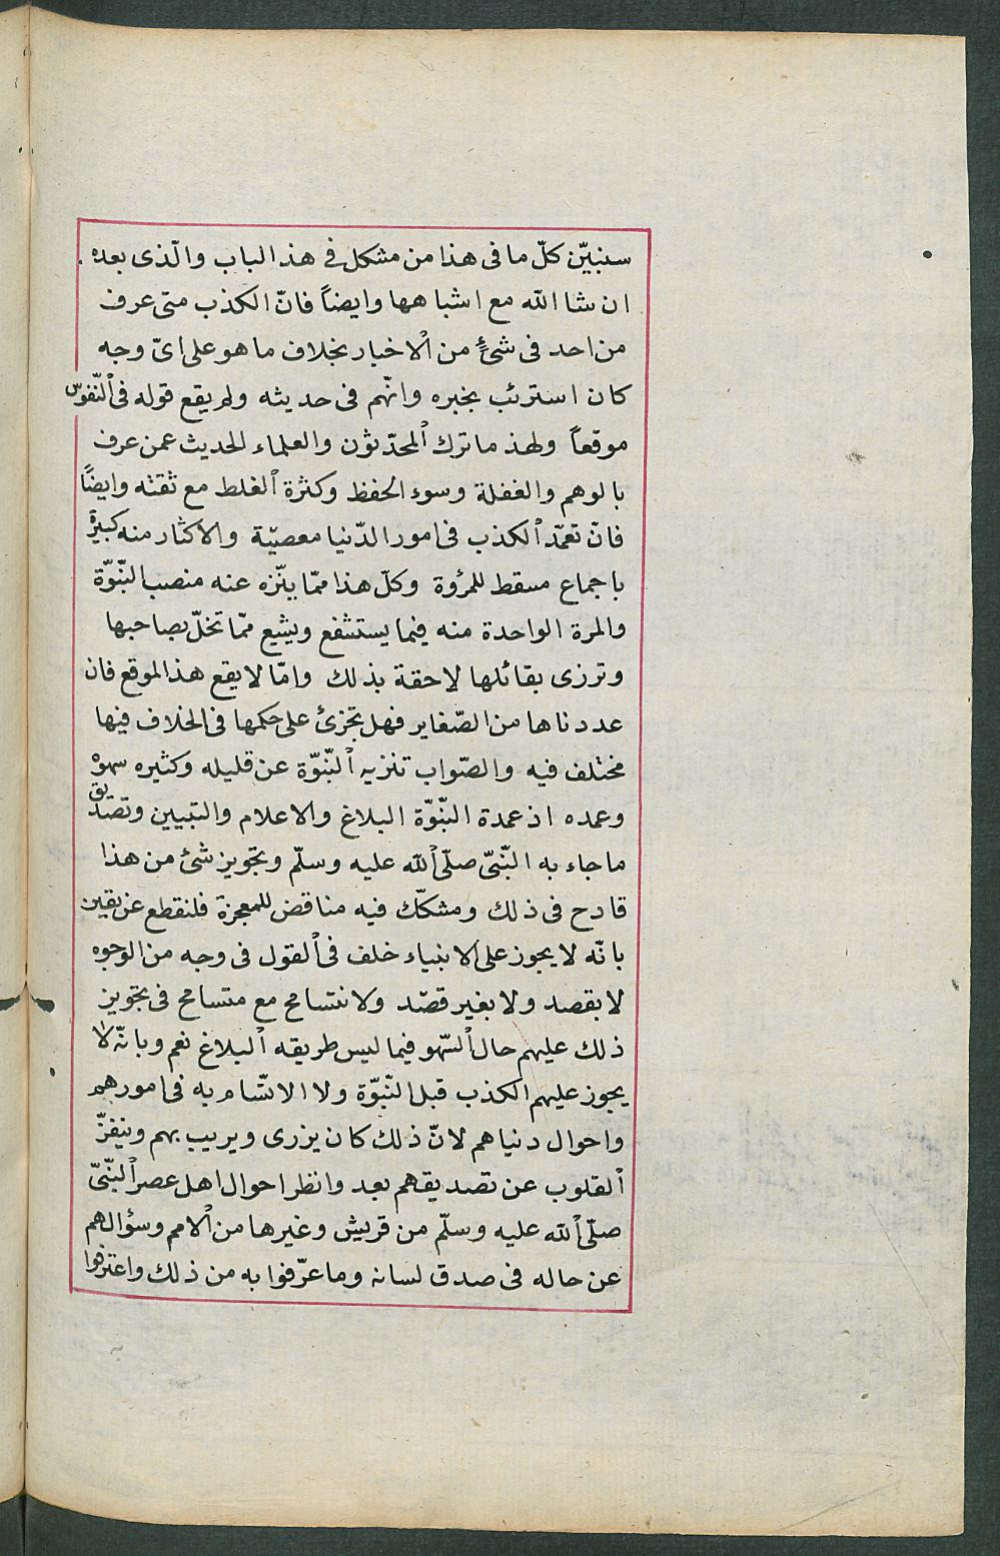 سنبيّن كلّ ما فى هذا من مشكل فى هذ الباب والّذى بعده
ان شا الله مع اشباهها وايضاً فانّ الكذب متى عرف
من احد فى شئٍ من الاخبار بخلاف ما هو على اىّ وجه
كان استرئب بخبره واتّهم فى حديثه ولم يقع قوله فى النّفوس
موقعاً ولهذ ما ترك المحدّثون والعلماء الحديث عمن عرف
بالوهم والغفلة وسوء الحفظ وكثرة الغلط مع ثقته وايضًا
فانّ تعمّد الكذب فى امور الدّنيا معصيّة والاكثار منه كبيرة
باجماع مسقط للمرؤة وكلّ هذا ممّا ينّزه عنه منصب النّبوّة
والمرة الواحدة منه فيما يستشفع ويشيع ممّا تخلّ بصاحبها
وترزى بقائلها لاحقة بذلك وامّا لا يقع هذ الموقع فان
عددناها من الصّغاير فهل تجزئ على حكمها فى الخلاف فيها
مختلف فيه والصّواب تنزيه النّبوّة عن قليله وكثيره سهوه
وعمده اذ عمدة النّبوّة البلاغ والاعلام والتبيين وتصديق
ما جاء به النّبىّ صلّى الله عليه وسلّم وتجويز شئ من هذا
قادح فى ذلك ومشكّك فيه مناقض للمعجزة فلنقطع عن يقين
بانّه لا يجوز على الانبياء خلف فى القول فى وجه من الوجوه
لا بقصد ولا بغير قصّد ولا نتسامح مع متسامح فى تجويز
ذلك عليهم حال السّهو فيما ليس طريقه البلاغ نعم وبانّه لا
يجوز عليهم الكذب قبل النّبوّة ولا الاتّسام به فى امورهم
واحوال دنياهم لانّ ذلك كان يزرى ويريب بهم وينفرّ
القلوب عن تصديقهم بعد وانظر احوال اهل عصر النّبىّ
صلّى الله عليه وسلّم من قريش وغيرها من الامم وسؤالهم
عن حاله فى صدق لسانه وما عرّفوا به من ذلك واعترفوا